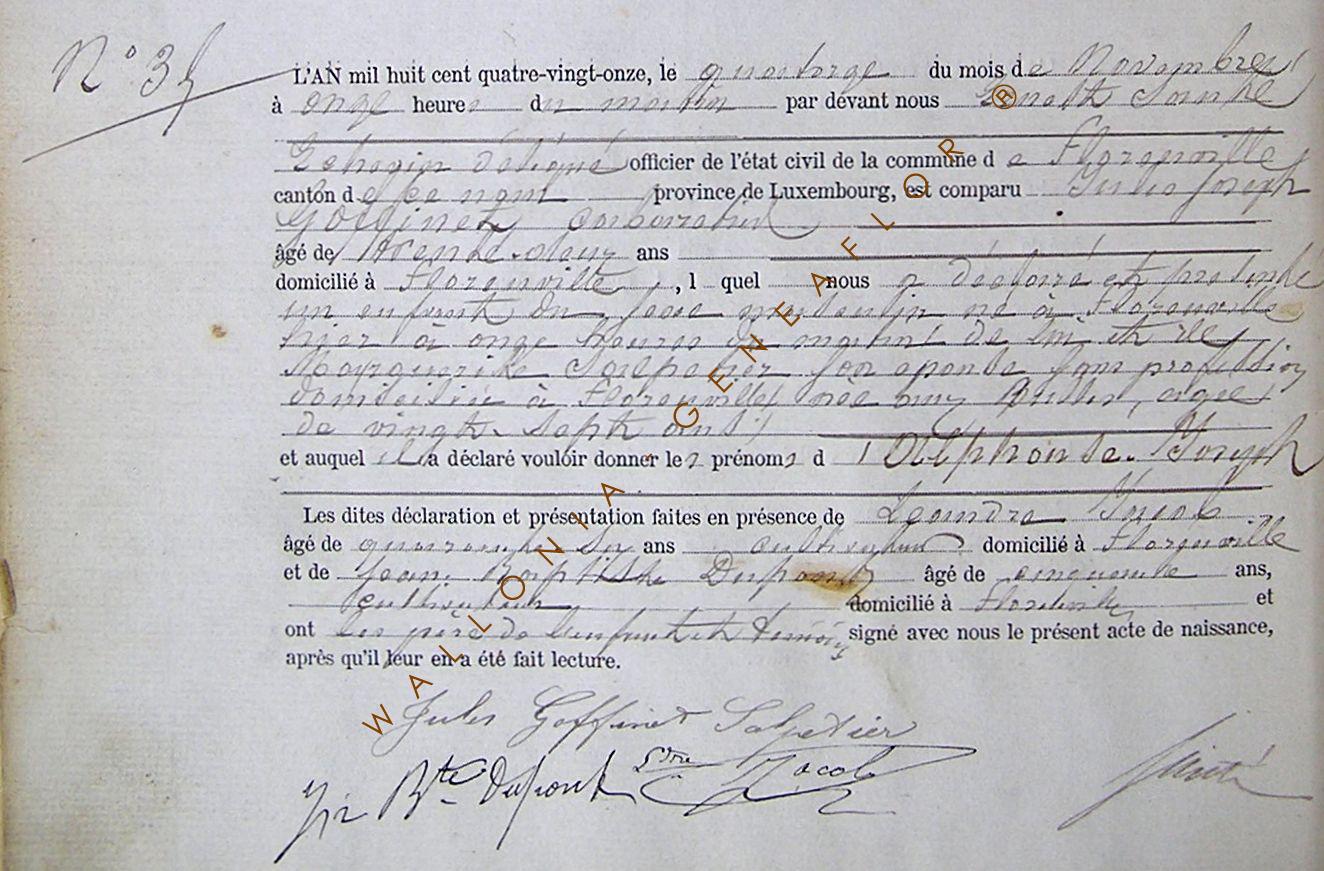 N° 35
L'AN mil huit cent quatre-vingt-onze, le quatorze du mois de Novembre
à onze heures du matin par devant nous
Echevin délégué officier de l'état civil de la commune de Florenville
canton de ce nom province de Luxembourg, est comparu Jules Joseph
Goffinet
âgé de trente-deux ans
domicilié à Florenville, l quel nous a déclaré et présenté
un enfant du sexe masculin né à Florenville
hier à onze heures du matin de lui et de
Marguerite Salpetier son épouse sans profession
domiciliée à Florenville née aux Bulles, agée
de vingt-sept ans
et auquel il a déclaré vouloir donner les prénoms d'Alphonse-Joseph
Les dites déclaration et présentation faites en présence de Léandre Jacob
âgé de quarante six ans cultivateur domicilié à Florenville
et de Jean-Baptiste Dupont âgé de cinquante ans,
cultivateur domicilié à Florenville et
ont les père de l'enfant et témoins signé avec nous le présent acte de naissance,
après qu'il leur en a été fait lecture.
Jules Goffinet Salpetier
Bte Dupont Ldre Jacob
WALLONIA.GENEAFLOR ®